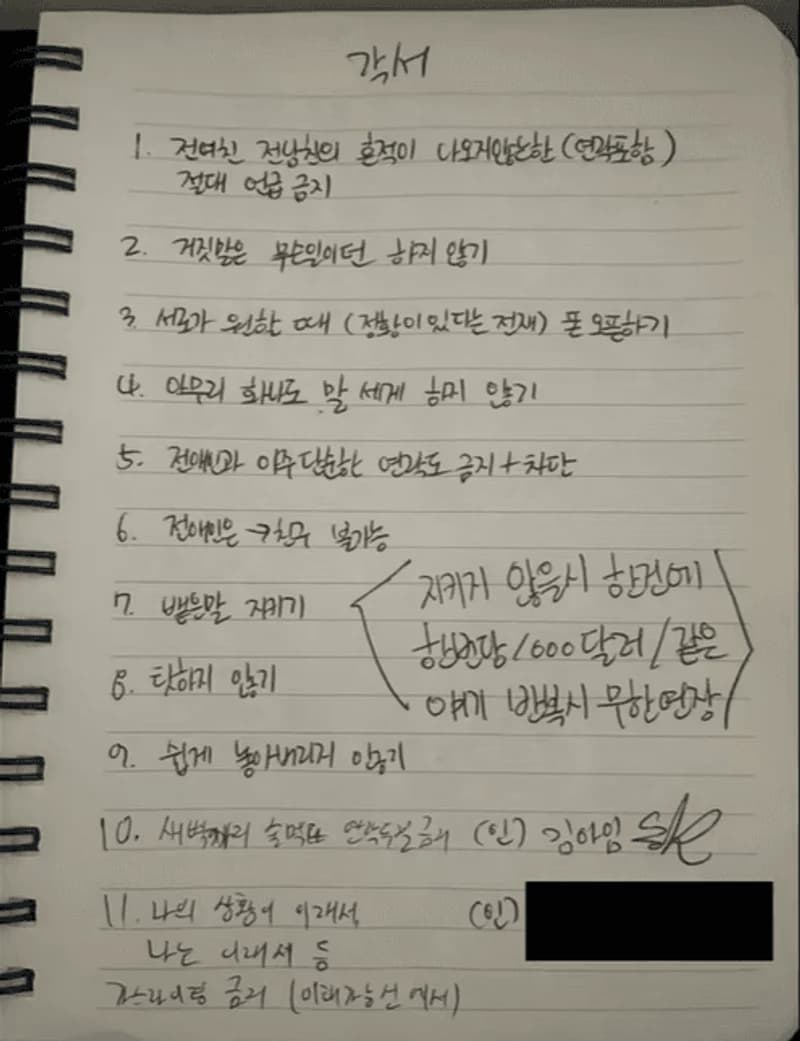 각서
1. 전여친 전남친의 흔적이 나오지않는한 (연락포함)
절대 언급 금지
2. 거짓말은 무슨일이던 하지 않기
3. 서로가 원한 때 (정황이 있다는 전재) 폰 오픈하기
4. 아무리 화나도 말 세게 하지 않기
5. 전애인과 아주 단순한 연락도 금지 + 차단
6. 전애인은 → 친구 불가능
7. 뱉은말 지키기
지키지 않을시 한건에
한번당/600달러/같은
얘기 반복시 무한연장
8. 탓하지 않기
9. 쉽게 놓아버리지 않기
10. 새벽까지 술먹고 연락두절 금지 (인) 김아임
11. 나의 상황이 이래서 (인)
나는 이래서 등
가스라이팅 금지 (이해가능선에서)